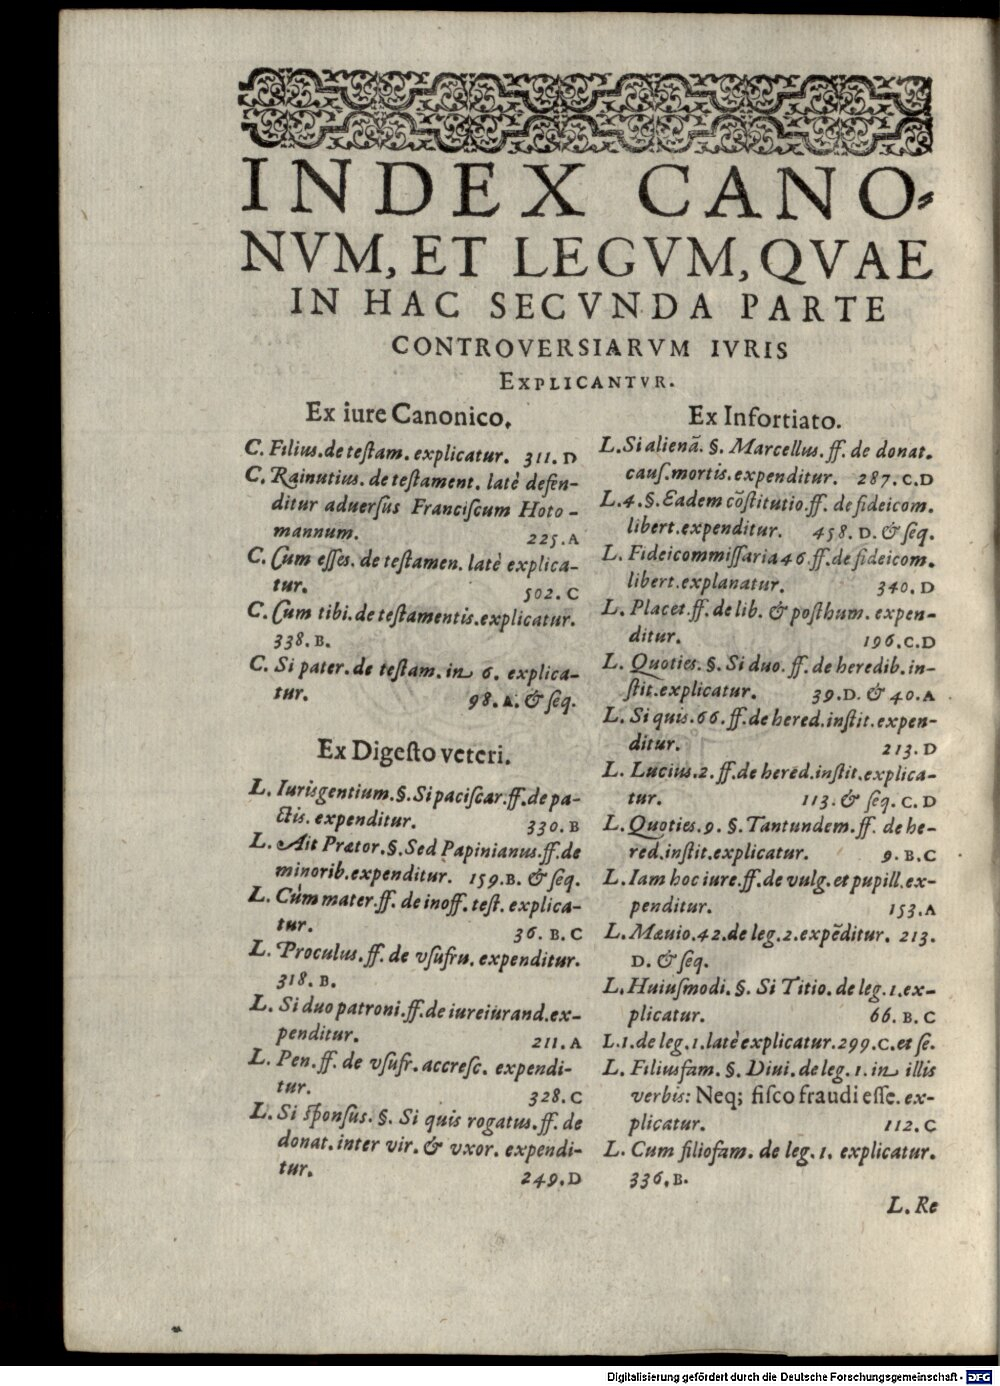 INDEX CANO-
NVM, ET LEGVM, QVAE
IN HAC SECVNDA PARTE
CONTROVERSIARVM IVRIS
EXPLICANTVR.
Ex iure Canonico.
C. Filius. de teſtam. explicatur. 311. D
C. Rainutius. de teſtament. latè defen-
ditur aduerſus Franciſcum Hoto-
mannum. 225. A
C. Cum eſſes. de teſtamen. latè explica-
tur. 502. C
C. Cum tibi. de teſtamentis. explicatur.
338. B.
C. Si pater. de teſtam. in 6. explica-
tur. 98. A. & ſeq.
Ex Digeſto veteri.
L. Iurisgentium. §. Si paciſcar. ff. de pa-
ctis. expenditur. 330. B
L. Ait Prætor. §. Sed Papinianus. ff. de
minorib. expenditur. 159. B. & ſeq.
L. Cùm mater. ff. de inoff. teſt. explica-
tur. 36. B. C
L. Proculus. ff. de vſufru. expenditur.
318. B.
L. Si duo patroni. ff. de iureiurand. ex-
penditur. 211. A
L. Pen. ff. de vſufr. accreſc. expendi-
tur. 328. C
L. Si ſponſus. §. Si quis rogatus. ff. de
donat. inter vir. & vxor. expendi-
tur. 249. D
Ex Infortiato.
L. Si alienã. §. Marcellus. ff. de donat.
cauſ. mortis. expenditur. 287. C. D
L. 4. §. Eadem cõſtitutio. ff. de fideicom.
libert. expenditur. 458. D. & ſeq.
L. Fideicommiſſaria 46. ff. de fideicom.
libert. explanatur. 340. D
L. Placet. ff. de lib. & poſthum. expen-
ditur. 196. C. D
L. Quoties. §. Si duo. ff. de heredib. in-
ſtit. explicatur. 39. D. & 40. A
L. Si quis. 66. ff. de hered. inſtit. expen-
ditur. 213. D
L. Lucius. 2. ff. de hered. inſtit. explica-
tur. 113. & ſeq. C. D
L. Quoties. 9. §. Tantundem. ff. de he-
red. inſtit. explicatur. 9. B. C
L. Iam hoc iure. ff. de vulg. et pupill. ex-
penditur. 153. A
L. Mæuio. 42. de leg. 2. expẽditur. 213.
D. & ſeq.
L. Huiuſmodi. §. Si Titio. de leg. 1. ex-
plicatur. 66. B. C
L. 1. de leg. 1. latè explicatur. 299. C. et ſe.
L. Filiusfam. §. Diui. de leg. 1. in illis
verbis: Neq; fiſco fraudi eſſe. ex-
plicatur. 112. C
L. Cum filiofam. de leg. 1. explicatur.
336. B.
L. Re
Digitalisierung gefördert durch die Deutsche Forschungsgemeinschaft - DFG